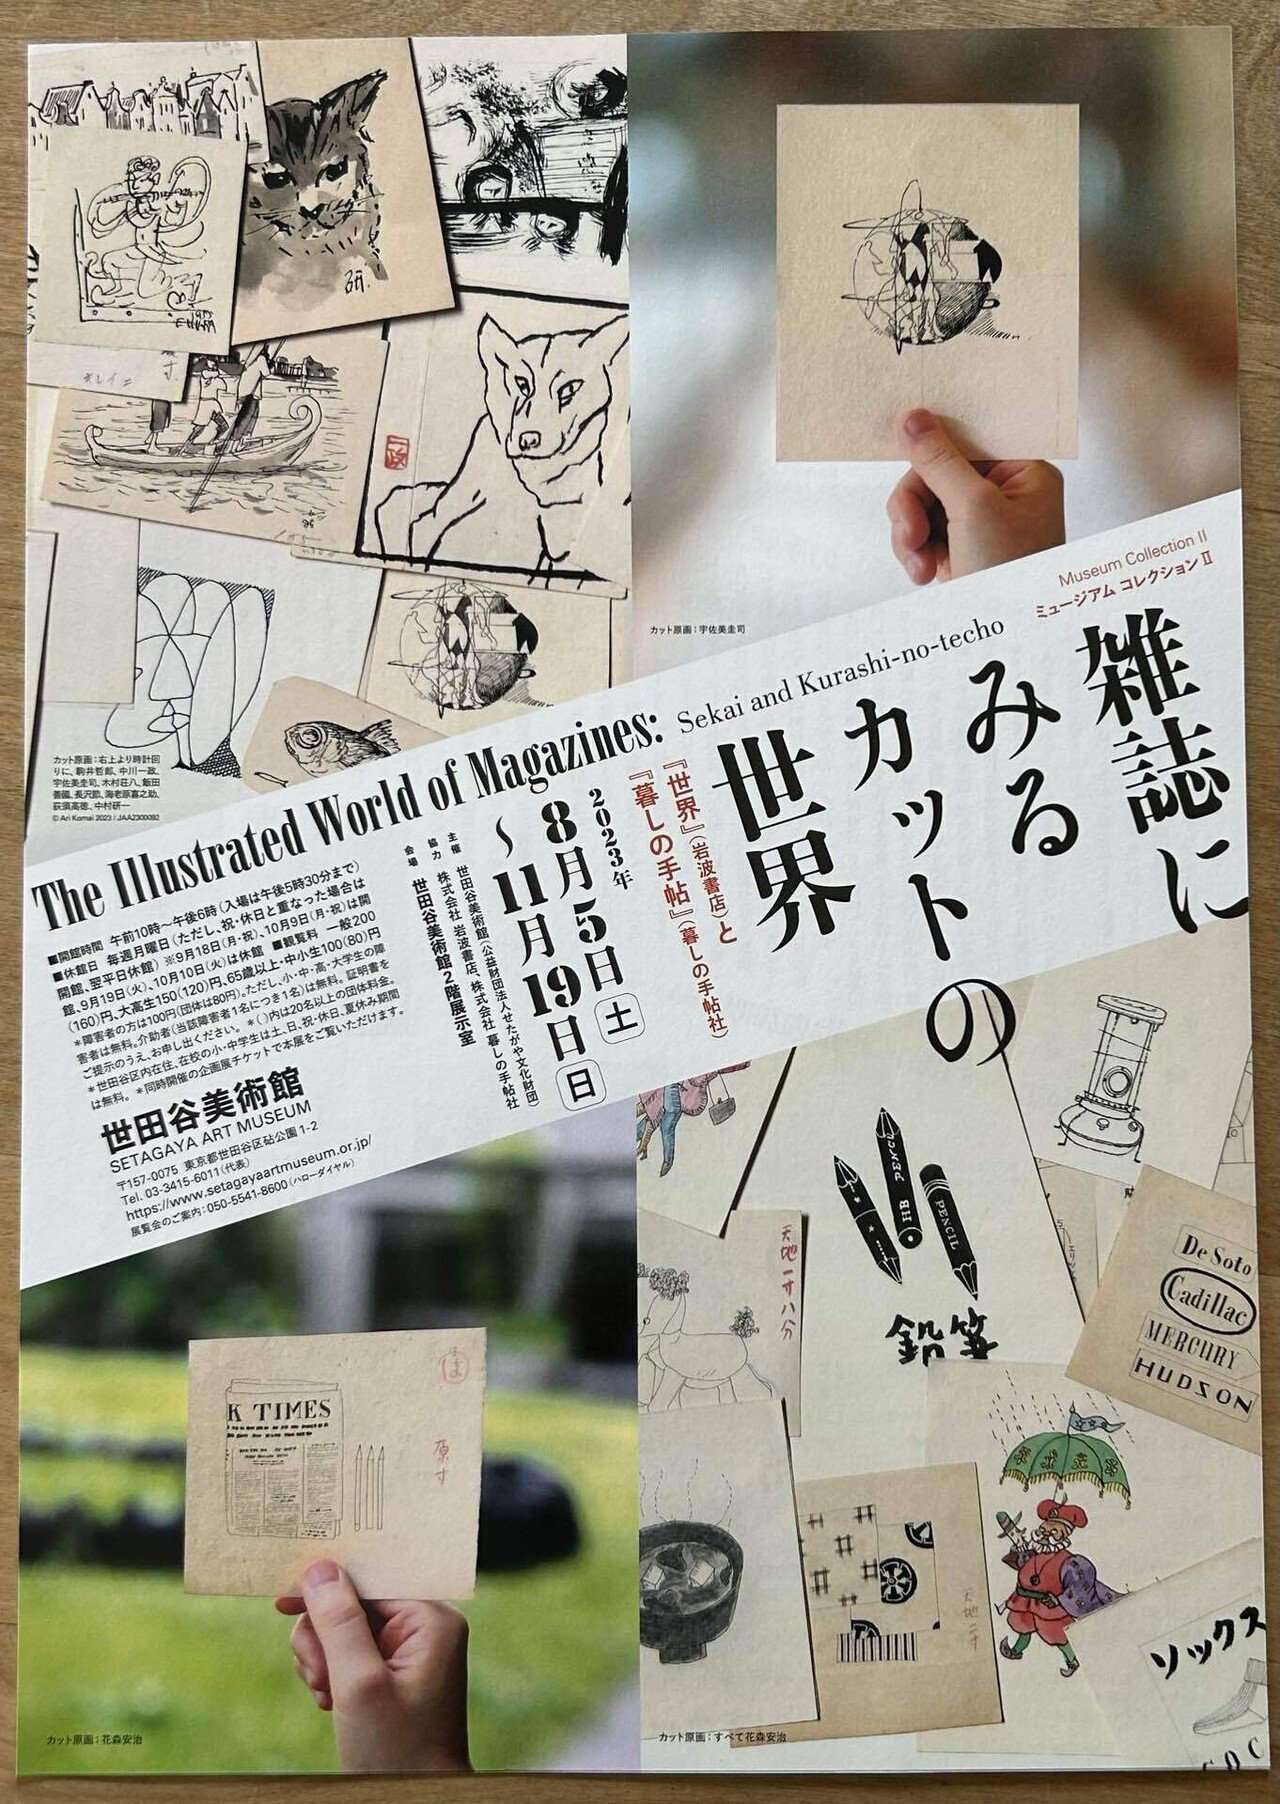 研
オレイニ
二政
カット原画：右上より時計回
りに、駒井哲郎、中川一政、
宇佐美圭司、木村荘八、飯田
善國、長沢節、海老原喜之助、
荻須高徳、中村研一
© Ari Komai 2023 / JAA2300092
カット原画：宇佐美圭司
Museum Collection II
ミュージアム コレクションⅡ
雑誌に
みる
カットの
世界
『世界』（岩波書店）と
『暮しの手帖』（暮しの手帖社）
The Illustrated World of Magazines: Sekai and Kurashi-no-techo
2023年
8月5日 土
〜11月19日 日
主催　世田谷美術館（公益財団法人せたがや文化財団）
協力　株式会社 岩波書店、株式会社 暮しの手帖社
会場　世田谷美術館2階展示室
■開館時間　午前10時〜午後6時（入場は午後5時30分まで）
■休館日　毎週月曜日（ただし、祝・休日と重なった場合は
開館、翌平日休館）※9月18日（月・祝）、10月9日（月・祝）は開
館、9月19日（火）、10月10日（火）は休館　■観覧料　一般200
（160）円、大高生150（120）円、65歳以上・中小生100（80）円
＊障害者の方は100円（団体は80円）。ただし、小・中・高・大学生の障
害者は無料。介助者（当該障害者1名につき1名）は無料。証明書を
ご提示のうえ、お申し出ください。＊（ ）内は20名以上の団体料金。
＊世田谷区内在住、在校の小・中学生は土、日、祝・休日、夏休み期間
は無料。＊同時開催の企画展チケットで本展をご覧いただけます。
世田谷美術館
SETAGAYA ART MUSEUM
〒157-0075 東京都世田谷区砧公園1-2
Tel. 03-3415-6011（代表）
https://www.setagayaartmuseum.or.jp/
展覧会のご案内：050-5541-8600（ハローダイヤル）
K TIMES
ほ
原寸
カット原画：花森安治
PENCIL
HB
PENCIL
鉛筆
天地一寸八分
De Soto
Cadillac
MERCURY
HUDSON
天地二寸
ソックス
SOC
カット原画：すべて花森安治